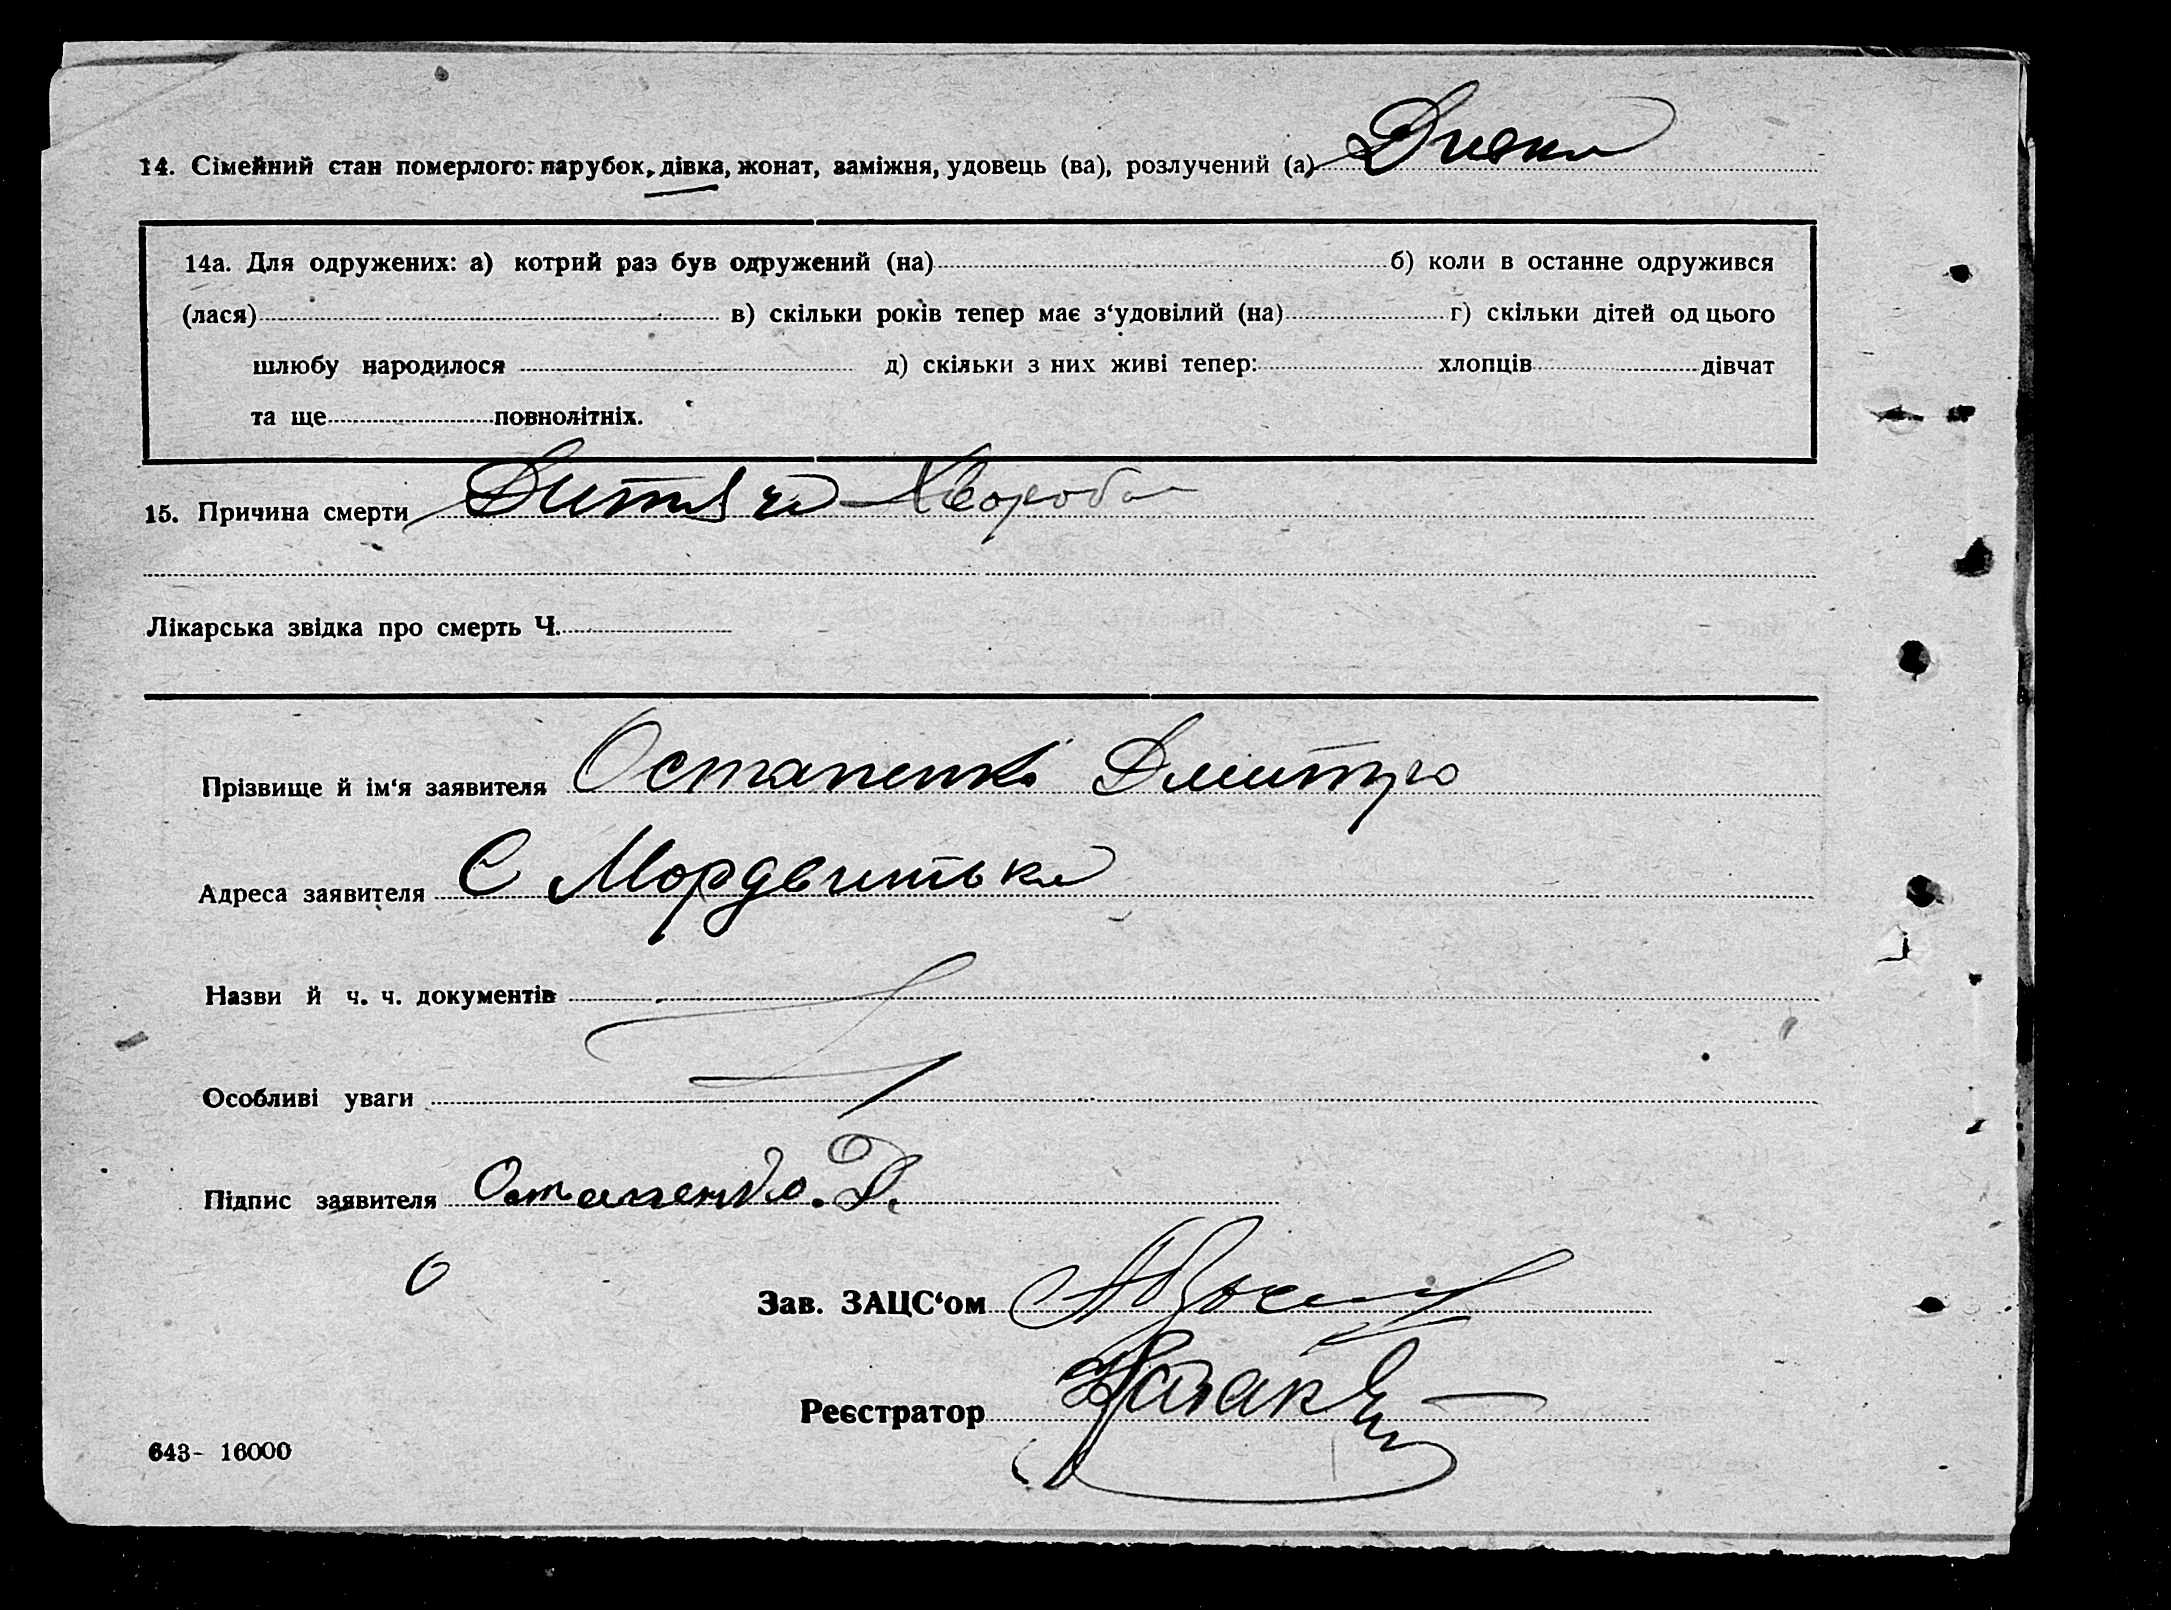 14. Сімейний стан померлого: парубок, дівка, жонат, заміжня, удовець (ва), розлучений (а) Дивка
14а. Для одружених: а) котрий раз був одружений (на) б) коли в останне одружився
(лася) в) скільки років тепер має з‘удовілий (на) г) скільки дітей од цього
шлюбу народилося д) скільки з них живі тепер: хлопців дівчат
та ще повнолітніх.
15. Причина смерти Дитяча Хвороба
Лікарська звідка про смерть Ч.
Прізвище й ім‘я заявителя Остапенко Дмитро
Адреса заявителя С
Назви й ч. ч. документів
Особливі уваги
Підпис заявителя Остапенко. Д.
Зав. ЗАЦС‘ом
Реєстратор
643- 16000